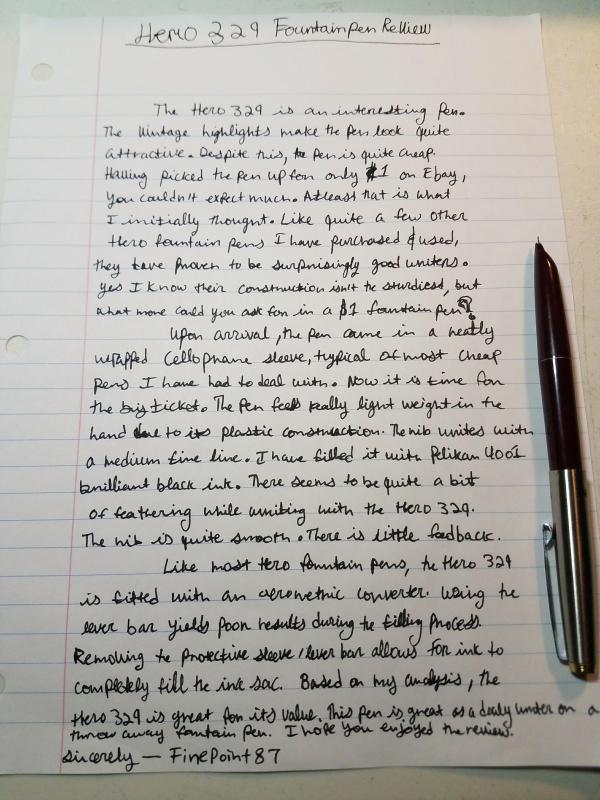 Hero 329 Fountain Pen Review
The Hero 329 is an interesting pen.
The vintage highlights make the pen look quite
attractive. Despite this, the pen is quite cheap.
Having picked the pen up for only $1 on Ebay,
you couldn't expect much. Atleast that is what
I initially thought. Like quite a few other
Hero fountain pens I have purchased & used,
they have proven to be surprisingly good writers.
Yes I know their construction isn't the sturdiest, but
what more could you ask for in a $1 fountain pen?
Upon arrival, the pen came in a neatly
wrapped cellophane sleeve, typical of most cheap
pens I have had to deal with. Now it is time for
the big ticket. The pen feels really light weight in the
hand due to its plastic construction. The nib writes with
a medium fine line. I have filled it with Pelikan 4001
brilliant black ink. There seems to be quite a bit
of feathering while writing with the Hero 329.
The nib is quite smooth. There is little feedback.
Like most Hero fountain pens, the Hero 329
is fitted with an aerometric converter. Using the
lever bar yields poor results during the filling process.
Removing the protective sleeve/lever bar allows for ink to
completely fill the ink sac. Based on my analysis, the
Hero 329 is great for its value. This pen is great as a daily writer or a
throw away fountain pen. I hope you enjoyed the review.
Sincerely — FinePoint87